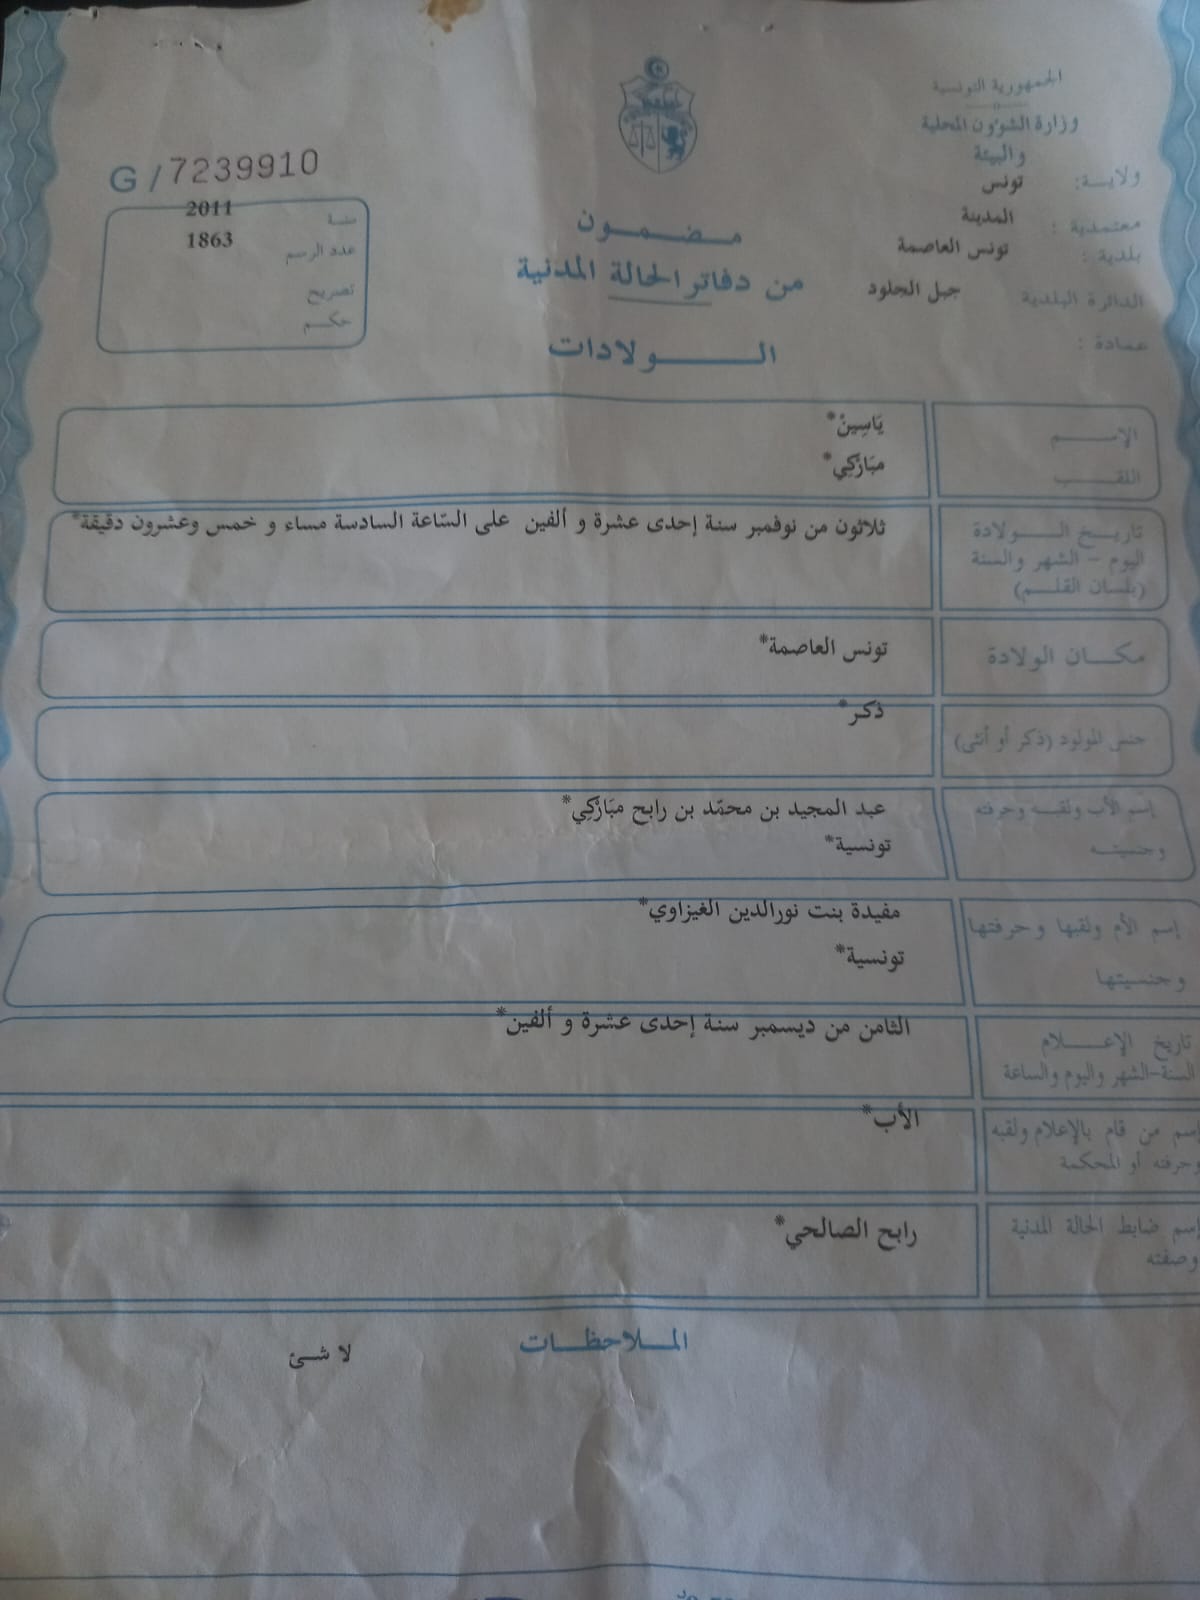 الجمهورية التونسية
وزارة الشؤون المحلية
والبيئة
ولايــة: تونس
معتمدية : المدينة
بلدية : تونس العاصمة
الدائرة البلدية جبل الجلود
عمادة :
G / 7239910
سنة 2011
عدد الرسم 1863
تصريح
حكم
مضمون
من دفاتر الحالة المدنية
الولادات
الإسم يَاسِينْ*
اللقب مبَارْكِي*
تاريخ الولادة ثلاثون من نوفمبر سنة إحدى عشرة و ألفين على السّاعة السادسة مساء و خمس وعشرون دقيقة*
اليوم - الشهر والسنة
(بلسان القلم)
مكان الولادة تونس العاصمة*
جنس المولود (ذكر أو أنثى) ذكر*
إسم الأب ولقبه وحرفته عبد المجيد بن محمّد بن رابح مبَارْكِي*
وجنسيته تونسية*
إسم الأم ولقبها وحرفتها مفيدة بنت نورالدين الغيزاوي*
وجنسيتها تونسية*
تاريخ الإعلام الثامن من ديسمبر سنة إحدى عشرة و ألفين*
السنة-الشهر واليوم والساعة
إسم من قام بالإعلام ولقبه الأب*
وحرفته أو المحكمة
إسم ضابط الحالة المدنية رابح الصالحي*
وصفته
الملاحظات
لا شئ